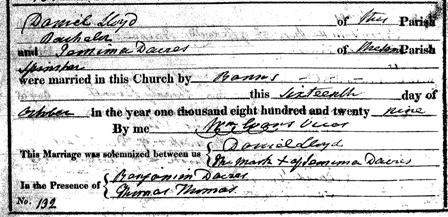 Daniel Lloyd of this Parish
Bachelor
and Jemima Davies of the same Parish
Spinster
were married in this Church by Banns
this sixteenth day of
October in the year one thousand eight hundred and twenty nine
By me Wm Evans Vicar
This Marriage was solemnized between us Daniel Lloyd
The Mark + of Jemima Davies
In the Presence of Benjamin Davies
Thomas Thomas
No. 132